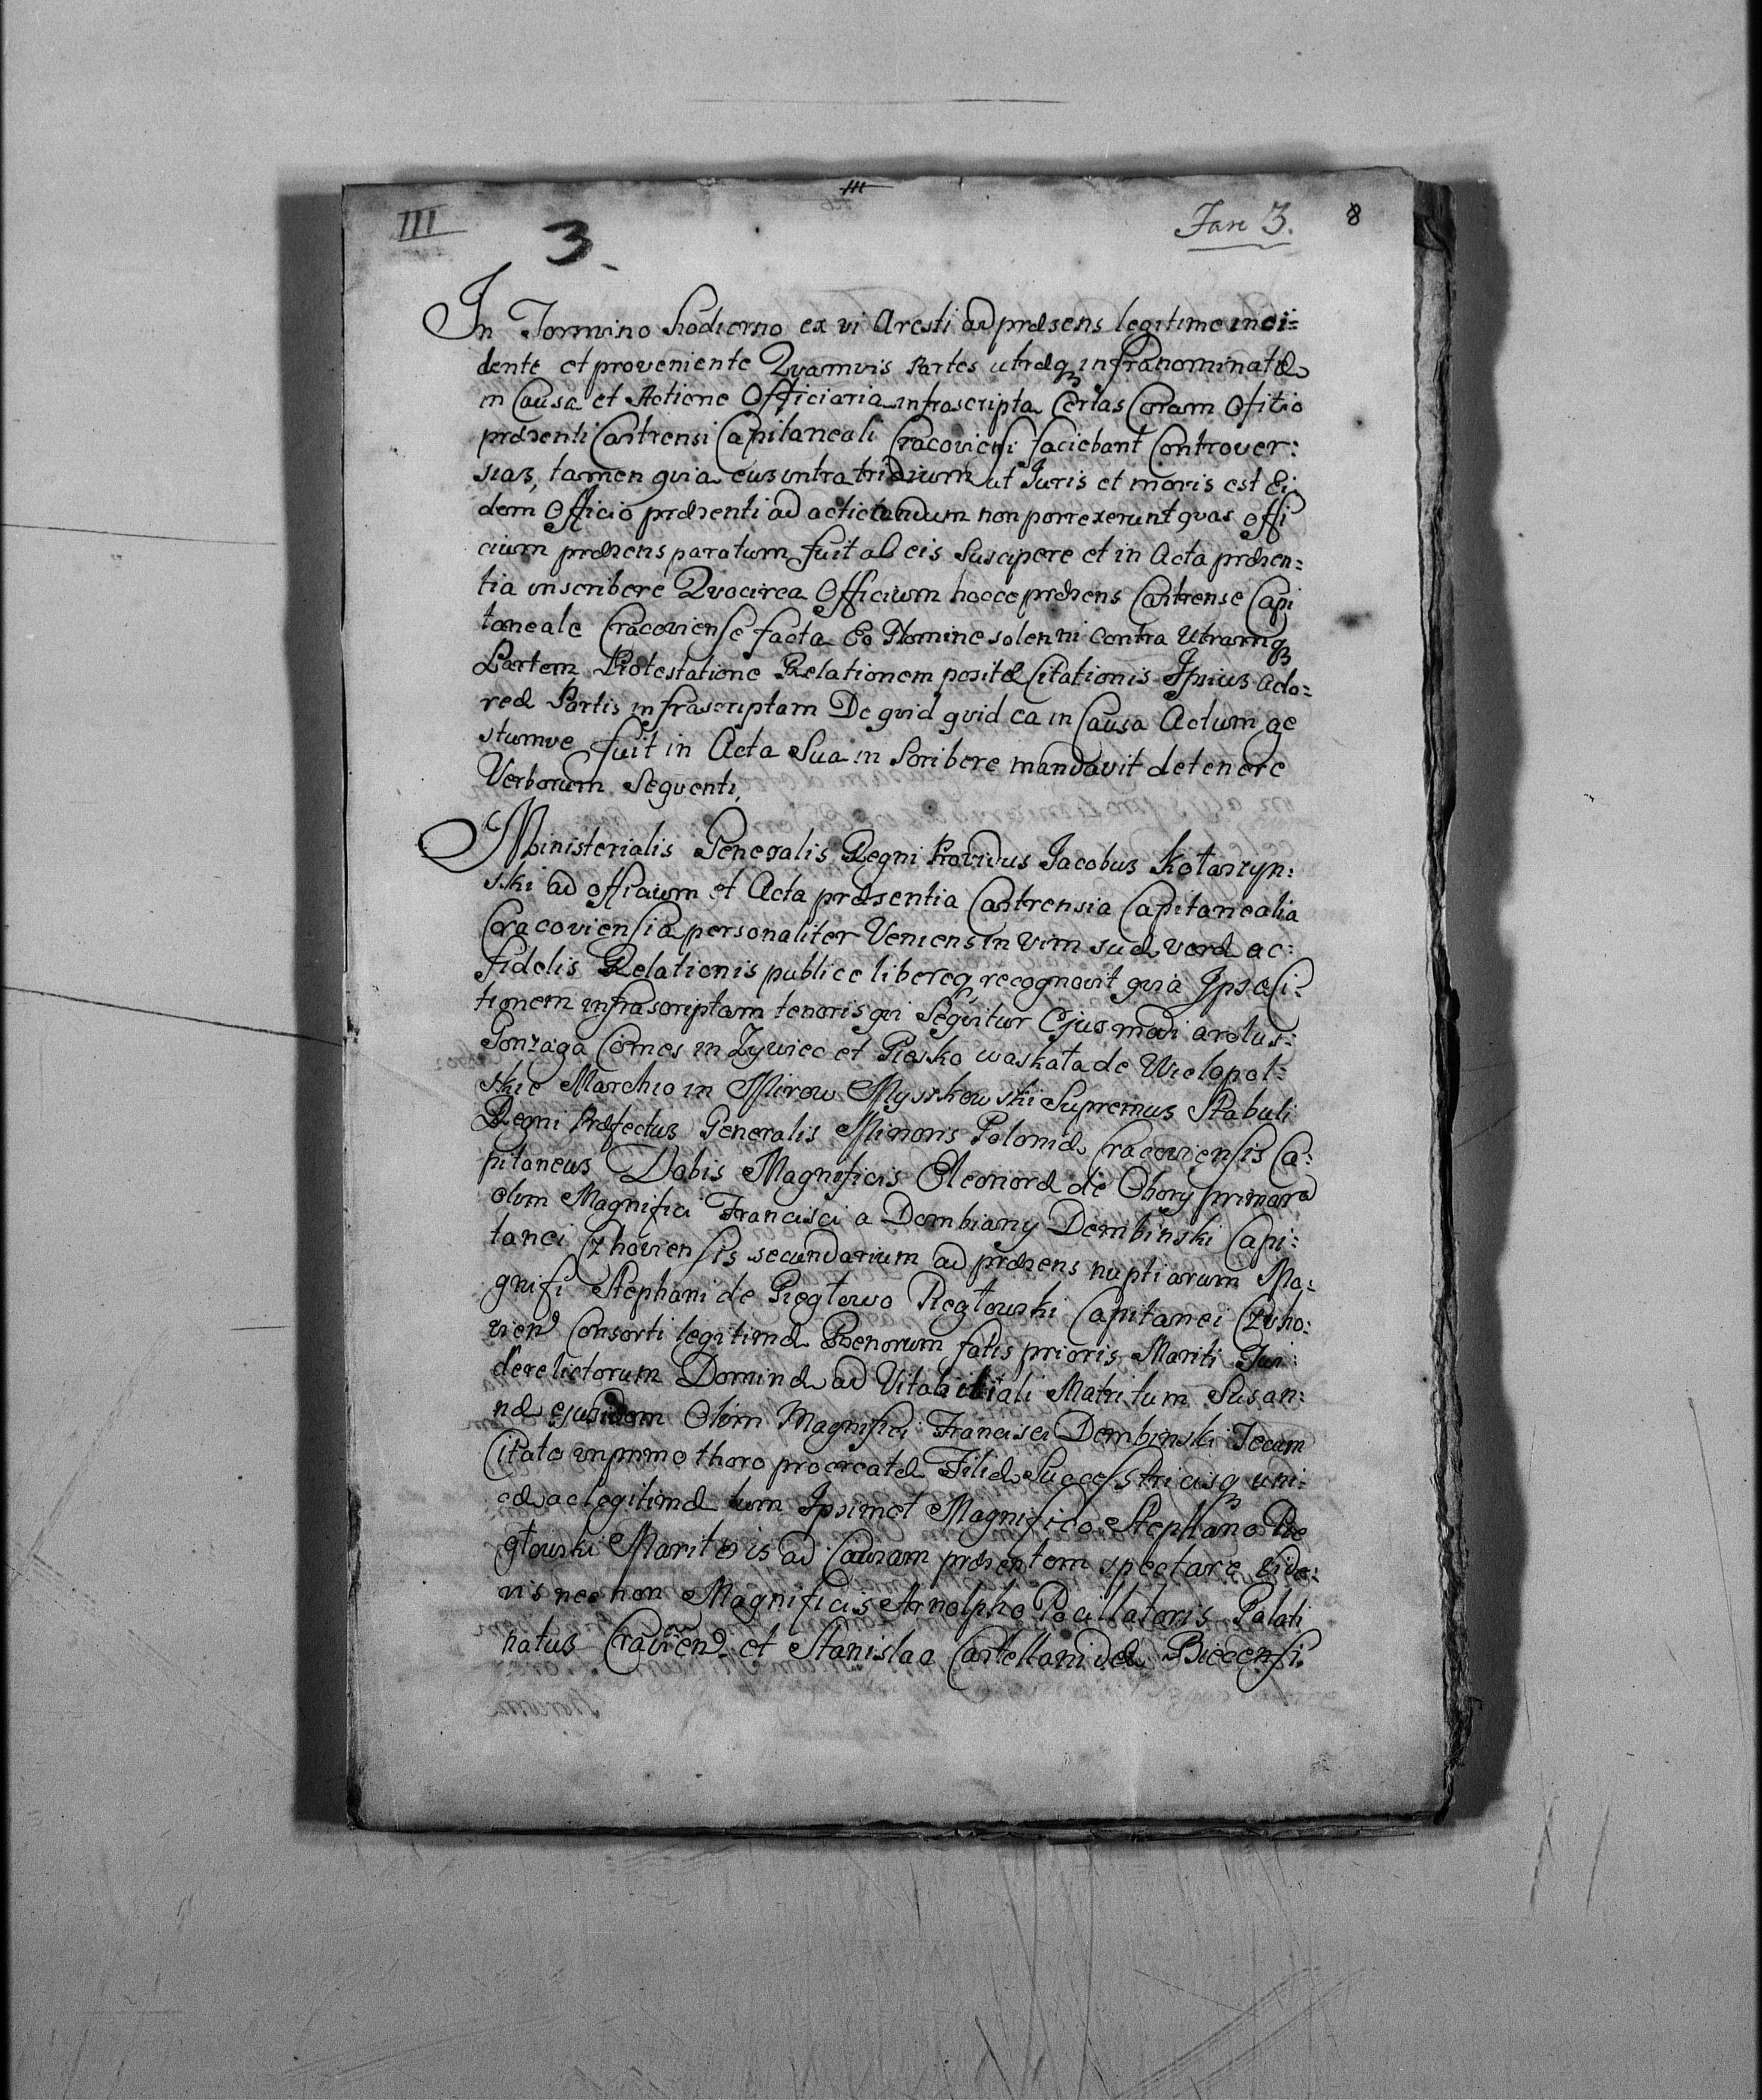 III
III
3
Fasc 3.
8
In Termino hodierno ex vi Aresti ad præsens legitime inci=
dente et proveniente Qvamvis Partes utræq infranominatæ
in Causa et Actione Officiaria infrascripta Certas Coram Ofitio
præsenti Castrensi Capitaneali Cracoviensi faciebant Controver:
sias, tamen qvia eus intra triduum ut Juris et moris est Ei
dem Officio præsenti ad acticandum non porrexerunt qvas offi
cium præsens paratum fuit ab eis Suscipere et in Acta præsen=
tia inscribere Qvocirca Officium hocce præsens Castrense Capi
taneale Cracoviense facta Eo Nomine solenni Contra Utramq
Partem Protestatione Relationem positæ Citationis Ipsius Acto=
reæ Partis infrascriptam De qvid qvid ea in Causa Actum ge
stumve fuit in Acta Sua in Scribere mandavit de tenore
Verborum Seqventi,
Ministerialis Generalis Regni Providus Jacobus Kotarzyn:
ski ad officium et Acta præsentia Castrensia Capitanealia
Cracoviensia personaliter Veniens in vim suæ veræ ac:
fidelis Relationis publice libereq recognovit qvia Ipsa Ci:
tionem infrascriptam tenoris qvi Seqvitur Ejus modi arolus:
Gonzaga Comes in Zywiec et Piesko waskata de Wielopol:
skie Marchio in Mirow Myszkowski Supremus Stabuli
Regni Præfectus Generalis Minoris Poloniæ Cracoviensis Ca:
pitaneus Vobis Magnificis Eleonoræ de Obory primore
olim Magnifici Francisci a Dembiany Dembinski Capi:
tanei Zhoviensis secundarium ad præsens nuptiarum Ma:
gnifi Stephani de Pieglowo Pieglowski Capitanei
vien Consorti legitimæ Bonorum fatis prioris Mariti Tui
derelictorum Dominæ ad Vitalitiali Matri tum Susan:
næ ejusdem Olim Magnifici Francisci Dembinski Tecum
Citato in primo thoro procreatæ Filiæ Successtricisq uni:
cæ ac legitimæ tum Ipsimet Magnifico Stephano Pie
glowski Marito is ad Causam præsentem spectare vide:
ris nec non Magnificis Arnolpho Pocillatoris Palati
natus Cravien et Stanislao Castellanidæ Biecensi